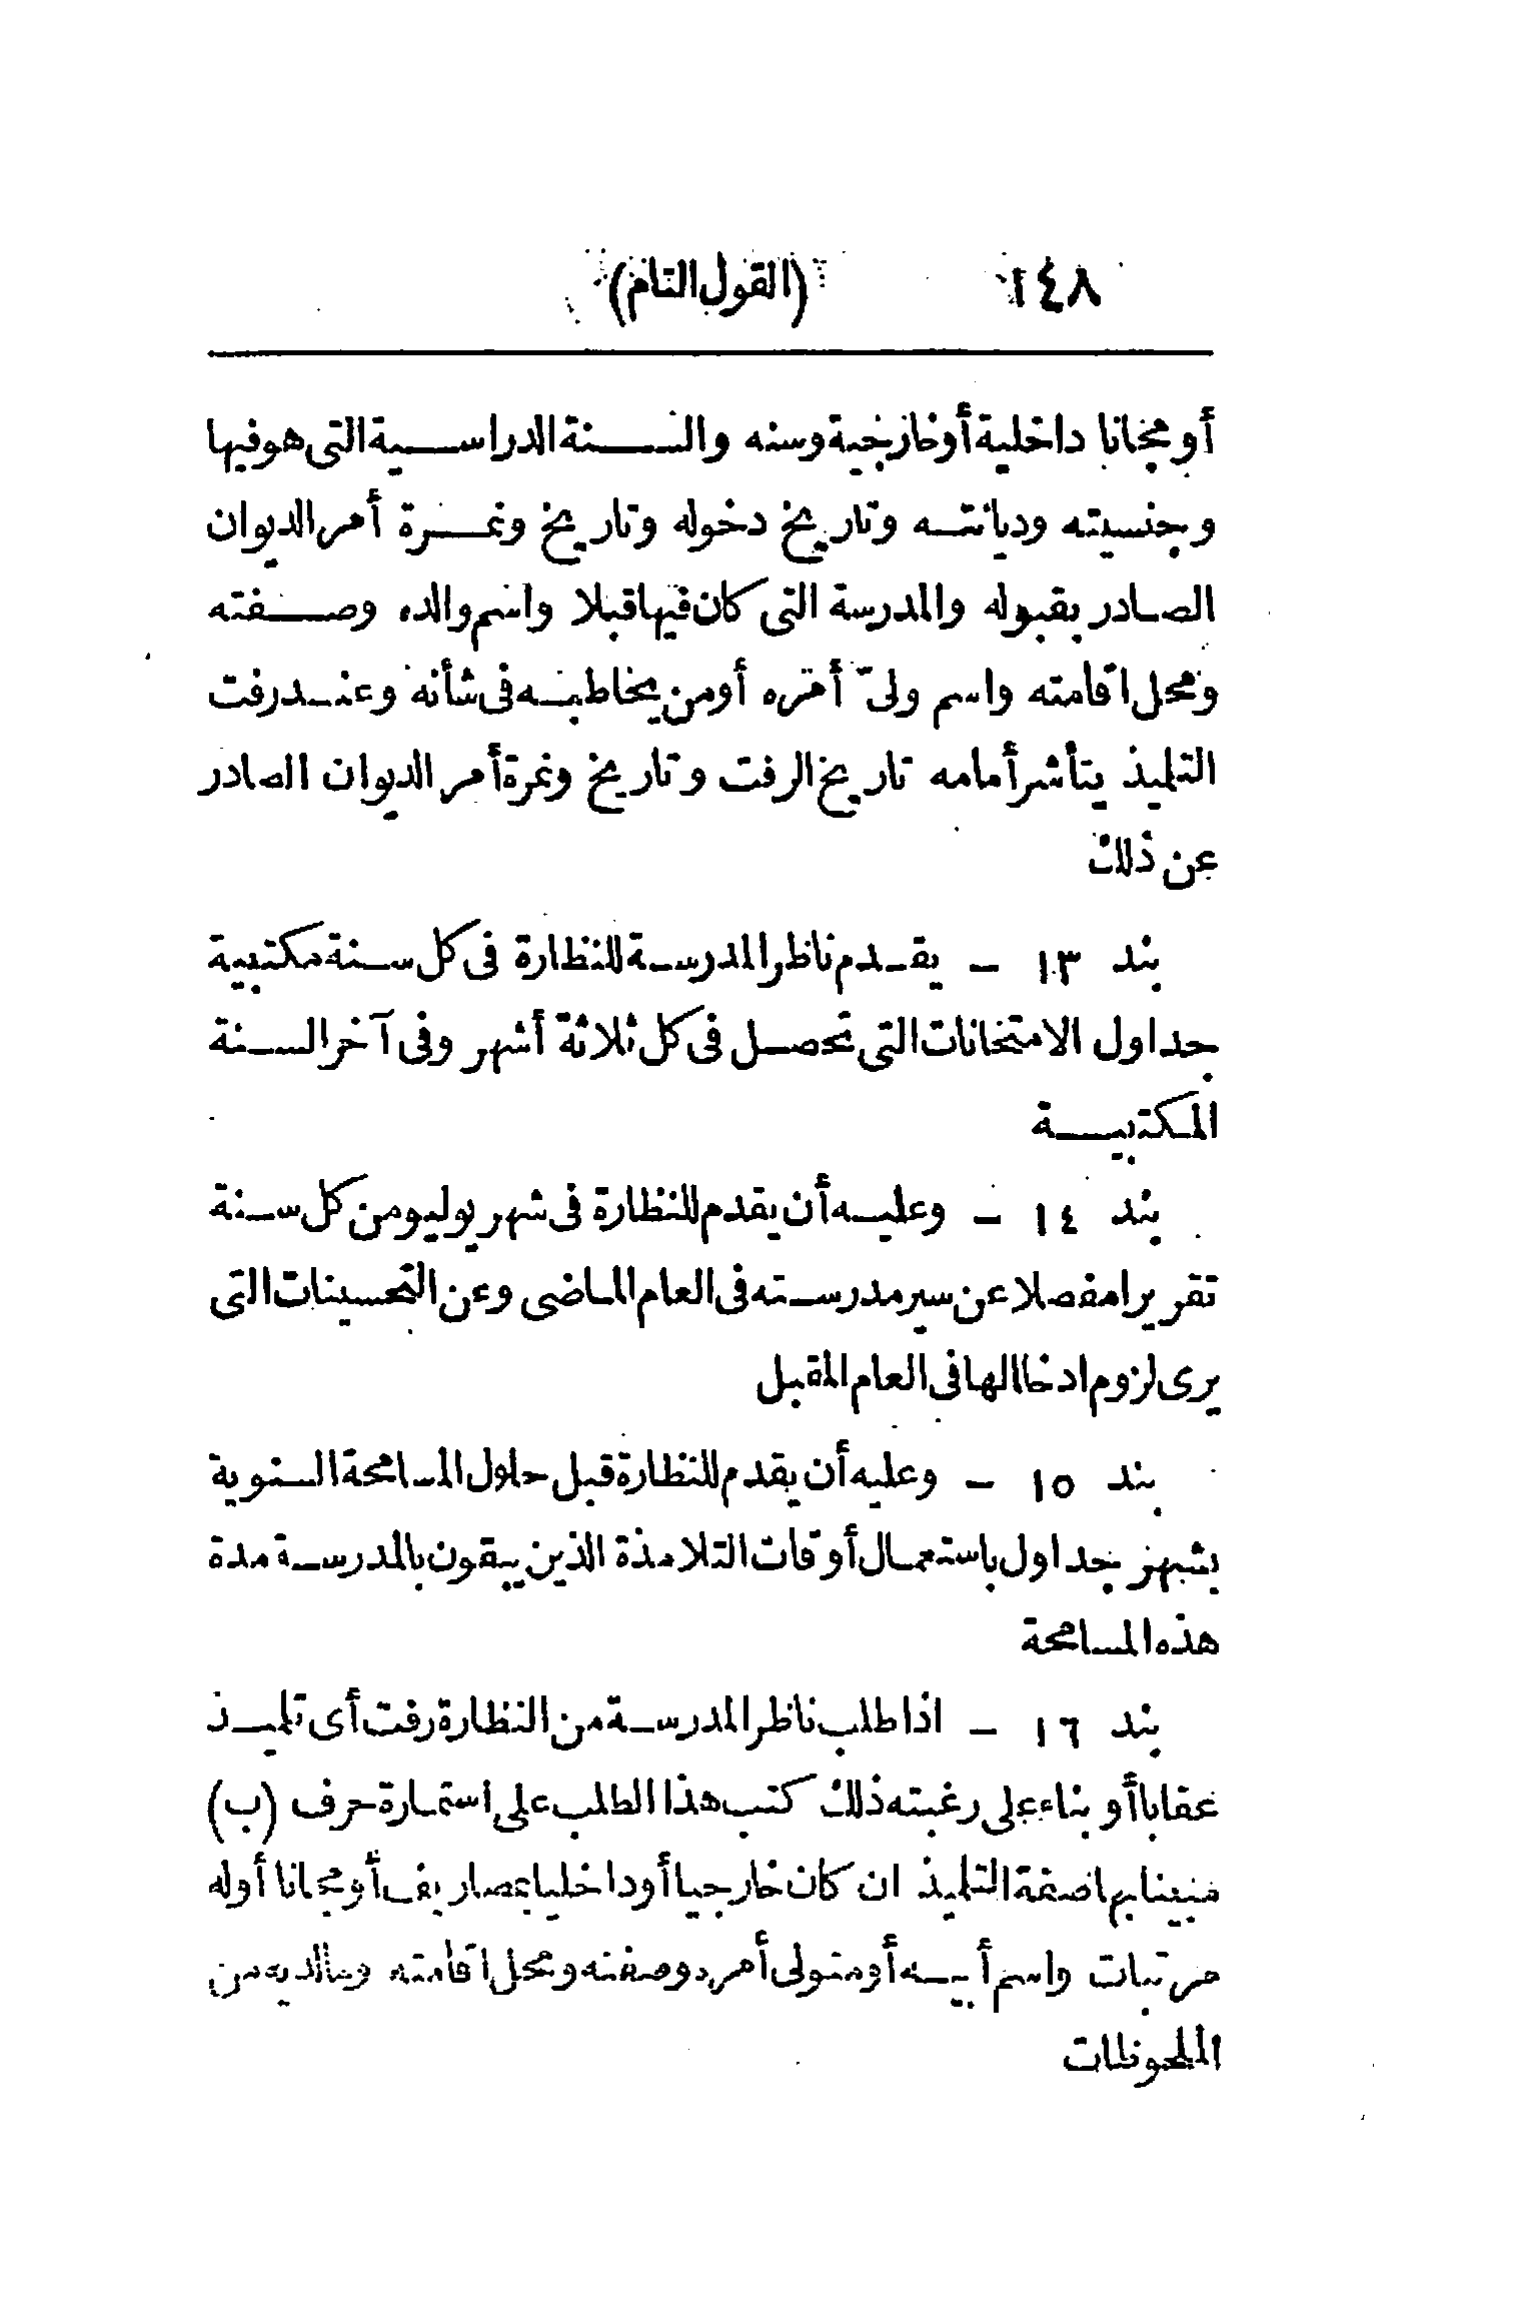 ١٤٨ (القول التام)
أو مجانا داخلية أو خارجية وسنه والسنة الدراسية التى هو فيها
وجنسيته وديانته وتاريخ دخوله وتاريخ ونمرة أمر الديوان
الصادر بقبوله والمدرسة التى كان فيها قبلا واسم والده وصفته
ومحل اقامته واسم ولىّ أمره أو من يخاطبه فى شأنه وعند رفت
التلميذ يتأشر أمامه تاريخ الرفت وتاريخ ونمرة أمر الديوان الصادر
عن ذلك
بند ١٣ - يقدم ناظر المدرسة للنظارة فى كل سنة مكتبية
جداول الامتحانات التى تحصل فى كل ثلاثة أشهر وفى آخر السنة
المكتبية
بند ١٤ - وعليه أن يقدم للنظارة فى شهر يوليو من كل سنة
تقريرا مفصلا عن سير مدرسته فى العام الماضى وعن التحسينات التى
يرى لزوم ادخالها فى العام المقبل
بند ١٥ - وعليه أن يقدم للنظارة قبل حلول المسامحة السنوية
بشهر جداول باستعمال أوقات التلامذة الذين يبقون بالمدرسة مدة
هذه المسامحة
بند ١٦ - اذا طلب ناظر المدرسة من النظارة رفت أى تلميذ
عقابا أو بناء على رغبته ذلك كتب هذا الطلب على استمارة حرف (ب)
مبينا بها صفة التلميذ ان كان خارجيا أو داخليا بمصاريف أو مجانا أو له
مرتبات واسم أبيه أو متولى أمره وصفته ومحل اقامته وما لديه من
الملحوظات